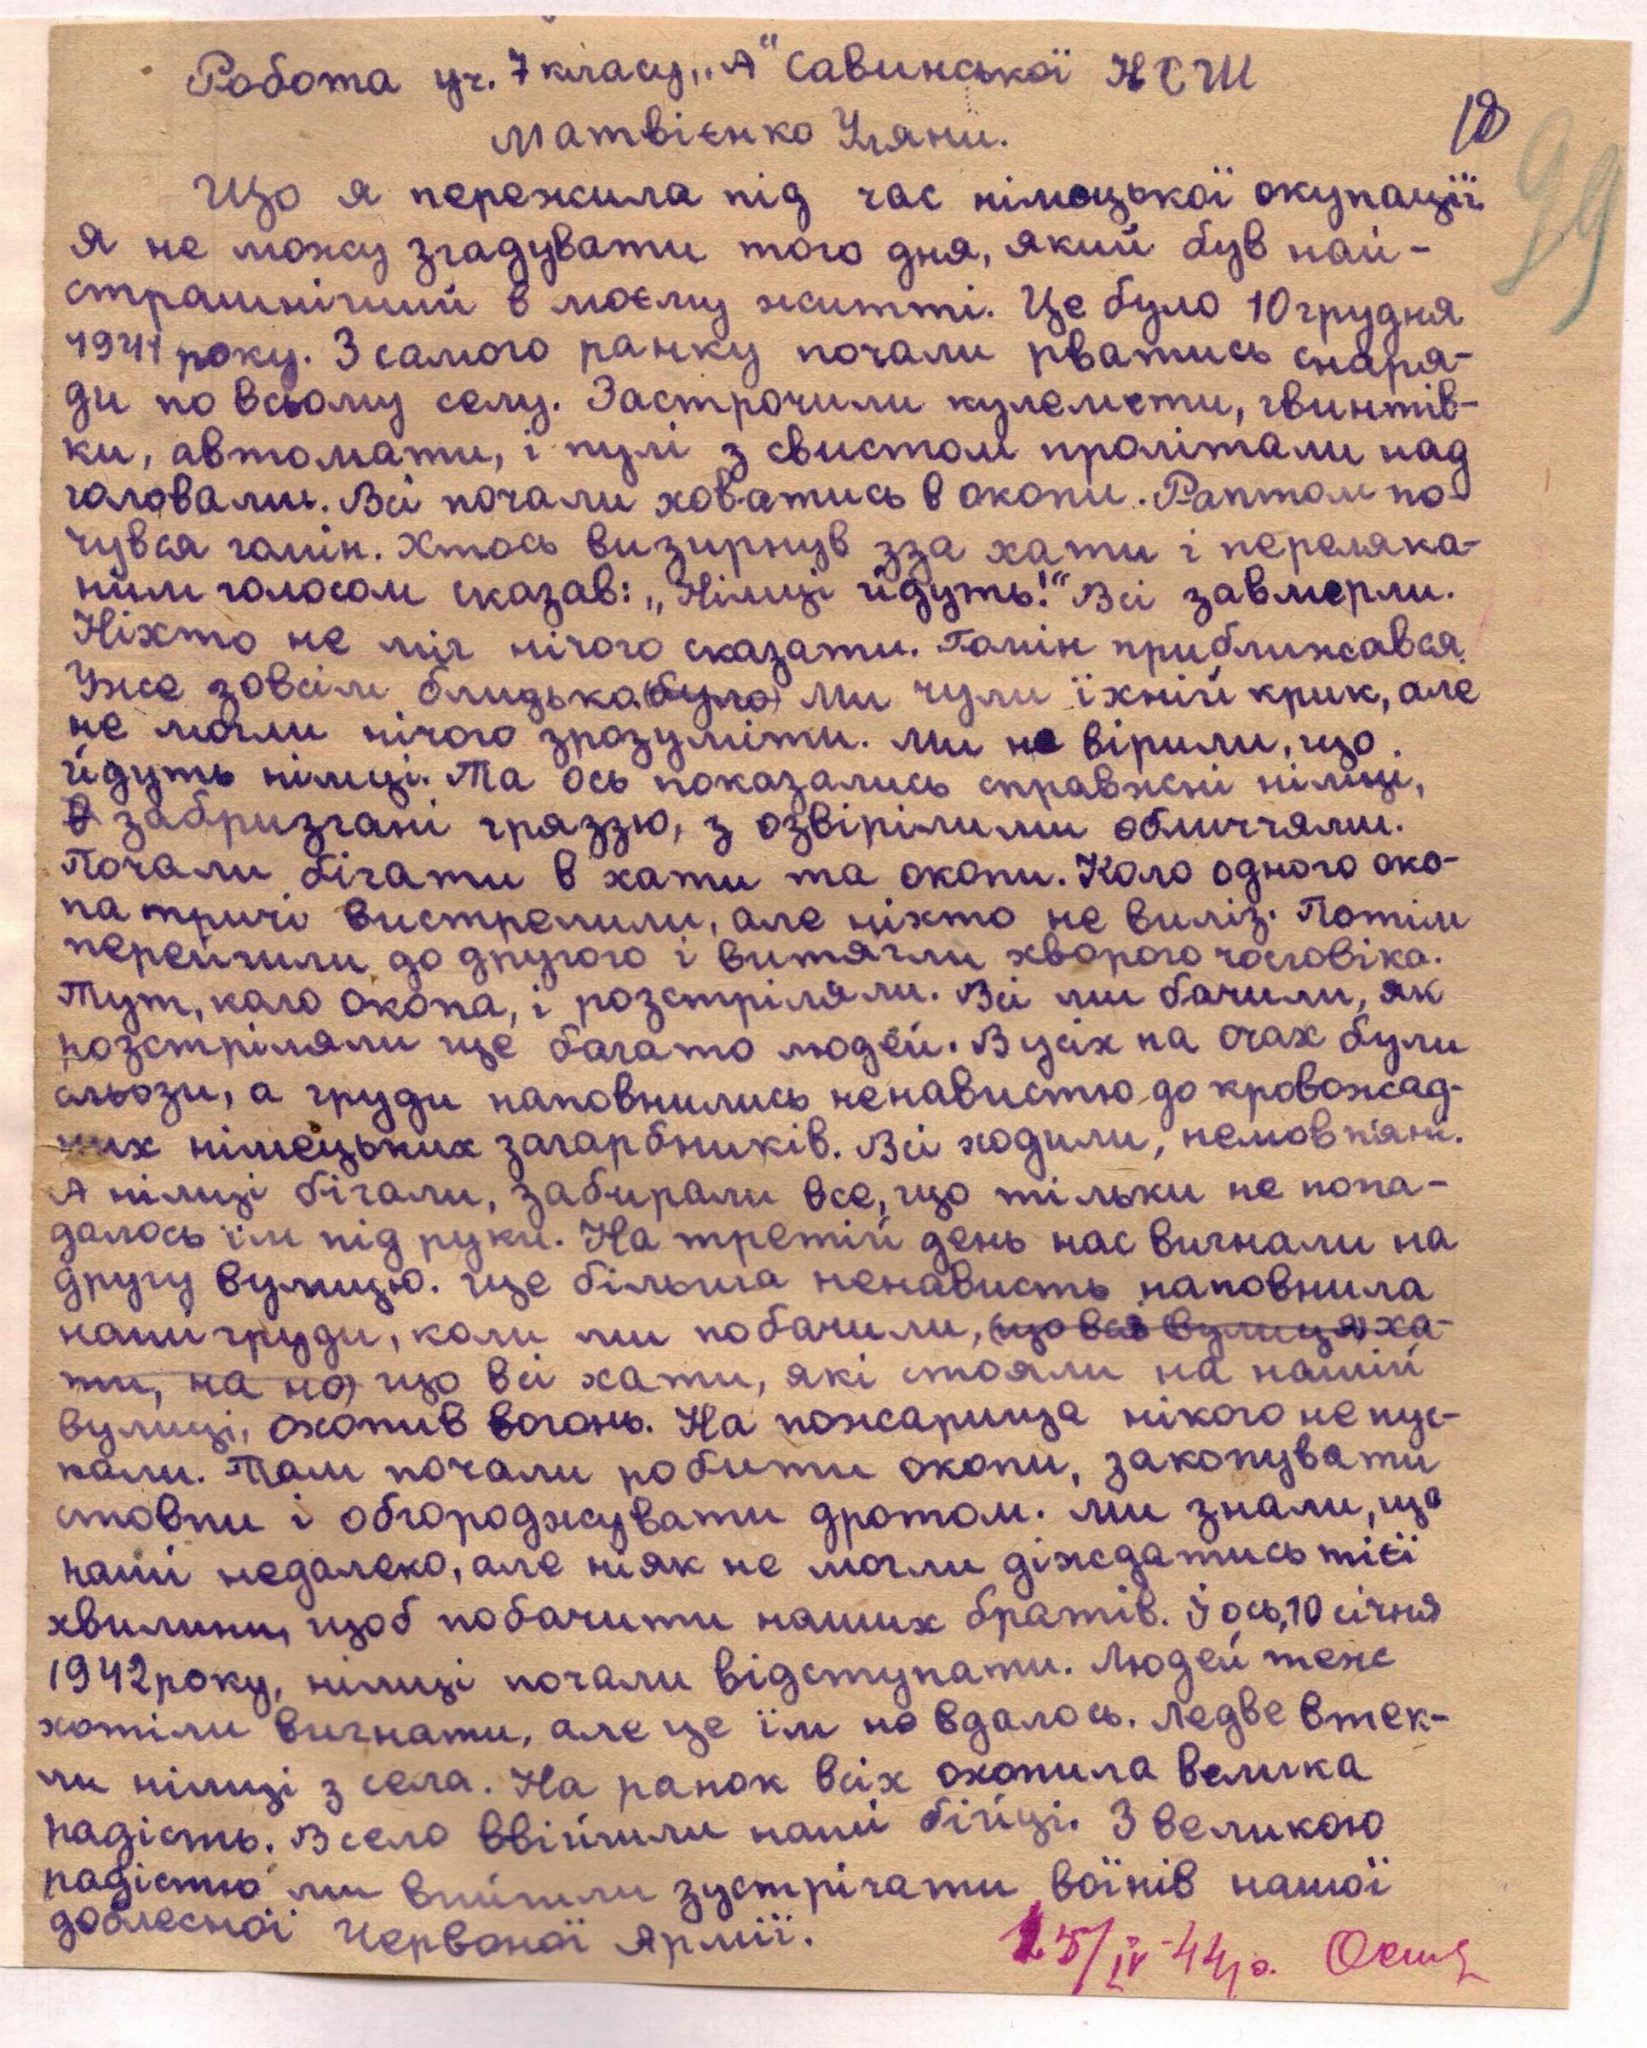 Робота уч. 7 класу „А" Савинської НСШ
Матвієнко Уляни.
18
99
Що я пережила під час німецької окупації.
Я не можу згадувати того дня, який був най-
страшнічий в моєму житті. Це було 10 грудня
1941 року. З самого ранку почали рватись снаря-
ди по всьому селу. Застрочили кулемети, гвинтів-
ки, автомати, і пулі з свистом пролітали над
головами. Всі почали ховатись в окопи. Раптом по-
чувся гомін. Хтось визирнув зза хати і переляка-
ним голосом сказав: „Німці йдуть!" Всі завмерли.
Ніхто не міг нічого сказати. Гомін приближався.
Уже зовсім близько (було) ми чули їхній крик, але
не могли нічого зрозуміти. Ми не вірили, що
йдуть німці. Та ось показались справжні німці,
забризгані гряззю, з озвірілими обличчями.
Почали бігати в хати та окопи. Коло одного око-
па тричі вистрелили, але ніхто не виліз. Потім
перейшли до другого і витягли хворого чоловіка.
Тут, коло окопа, і розстріляли. Всі ми бачили, як
розстріляли ще багато людей. В усіх на очах були
сльози, а груди наповнились ненавистю до кровожад-
них німецьких загарбників. Всі ходили, немов п'яні.
А німці бігали, забирали все, що тільки не попа-
далось їм під руки. На третій день нас вигнали на
другу вулицю. Ще більша ненависть наповнила
наші груди, коли ми побачили, (що вся вулиця) ха-
ти, на но) що всі хати, які стояли на нашій
вулиці, охопив вогонь. На пожарища нікого не пус-
кали. Там почали робити окопи, закопувати
стовпи і обгороджувати дротом. Ми знали, що
наші недалеко, але ніяк не могли діждатись тієї
хвилини, щоб побачити наших братів. І ось, 10 січня
1942 року, німці почали відступати. Людей теж
хотіли вигнати, але це їм не вдалось. Ледве втек-
ли німці з села. На ранок всіх охопила велика
радість. В село ввійшли наші бійці. З великою
радістю ми вийшли зустрічати воїнів нашої
доблесної Червоної Армії.
25/IV-44р.